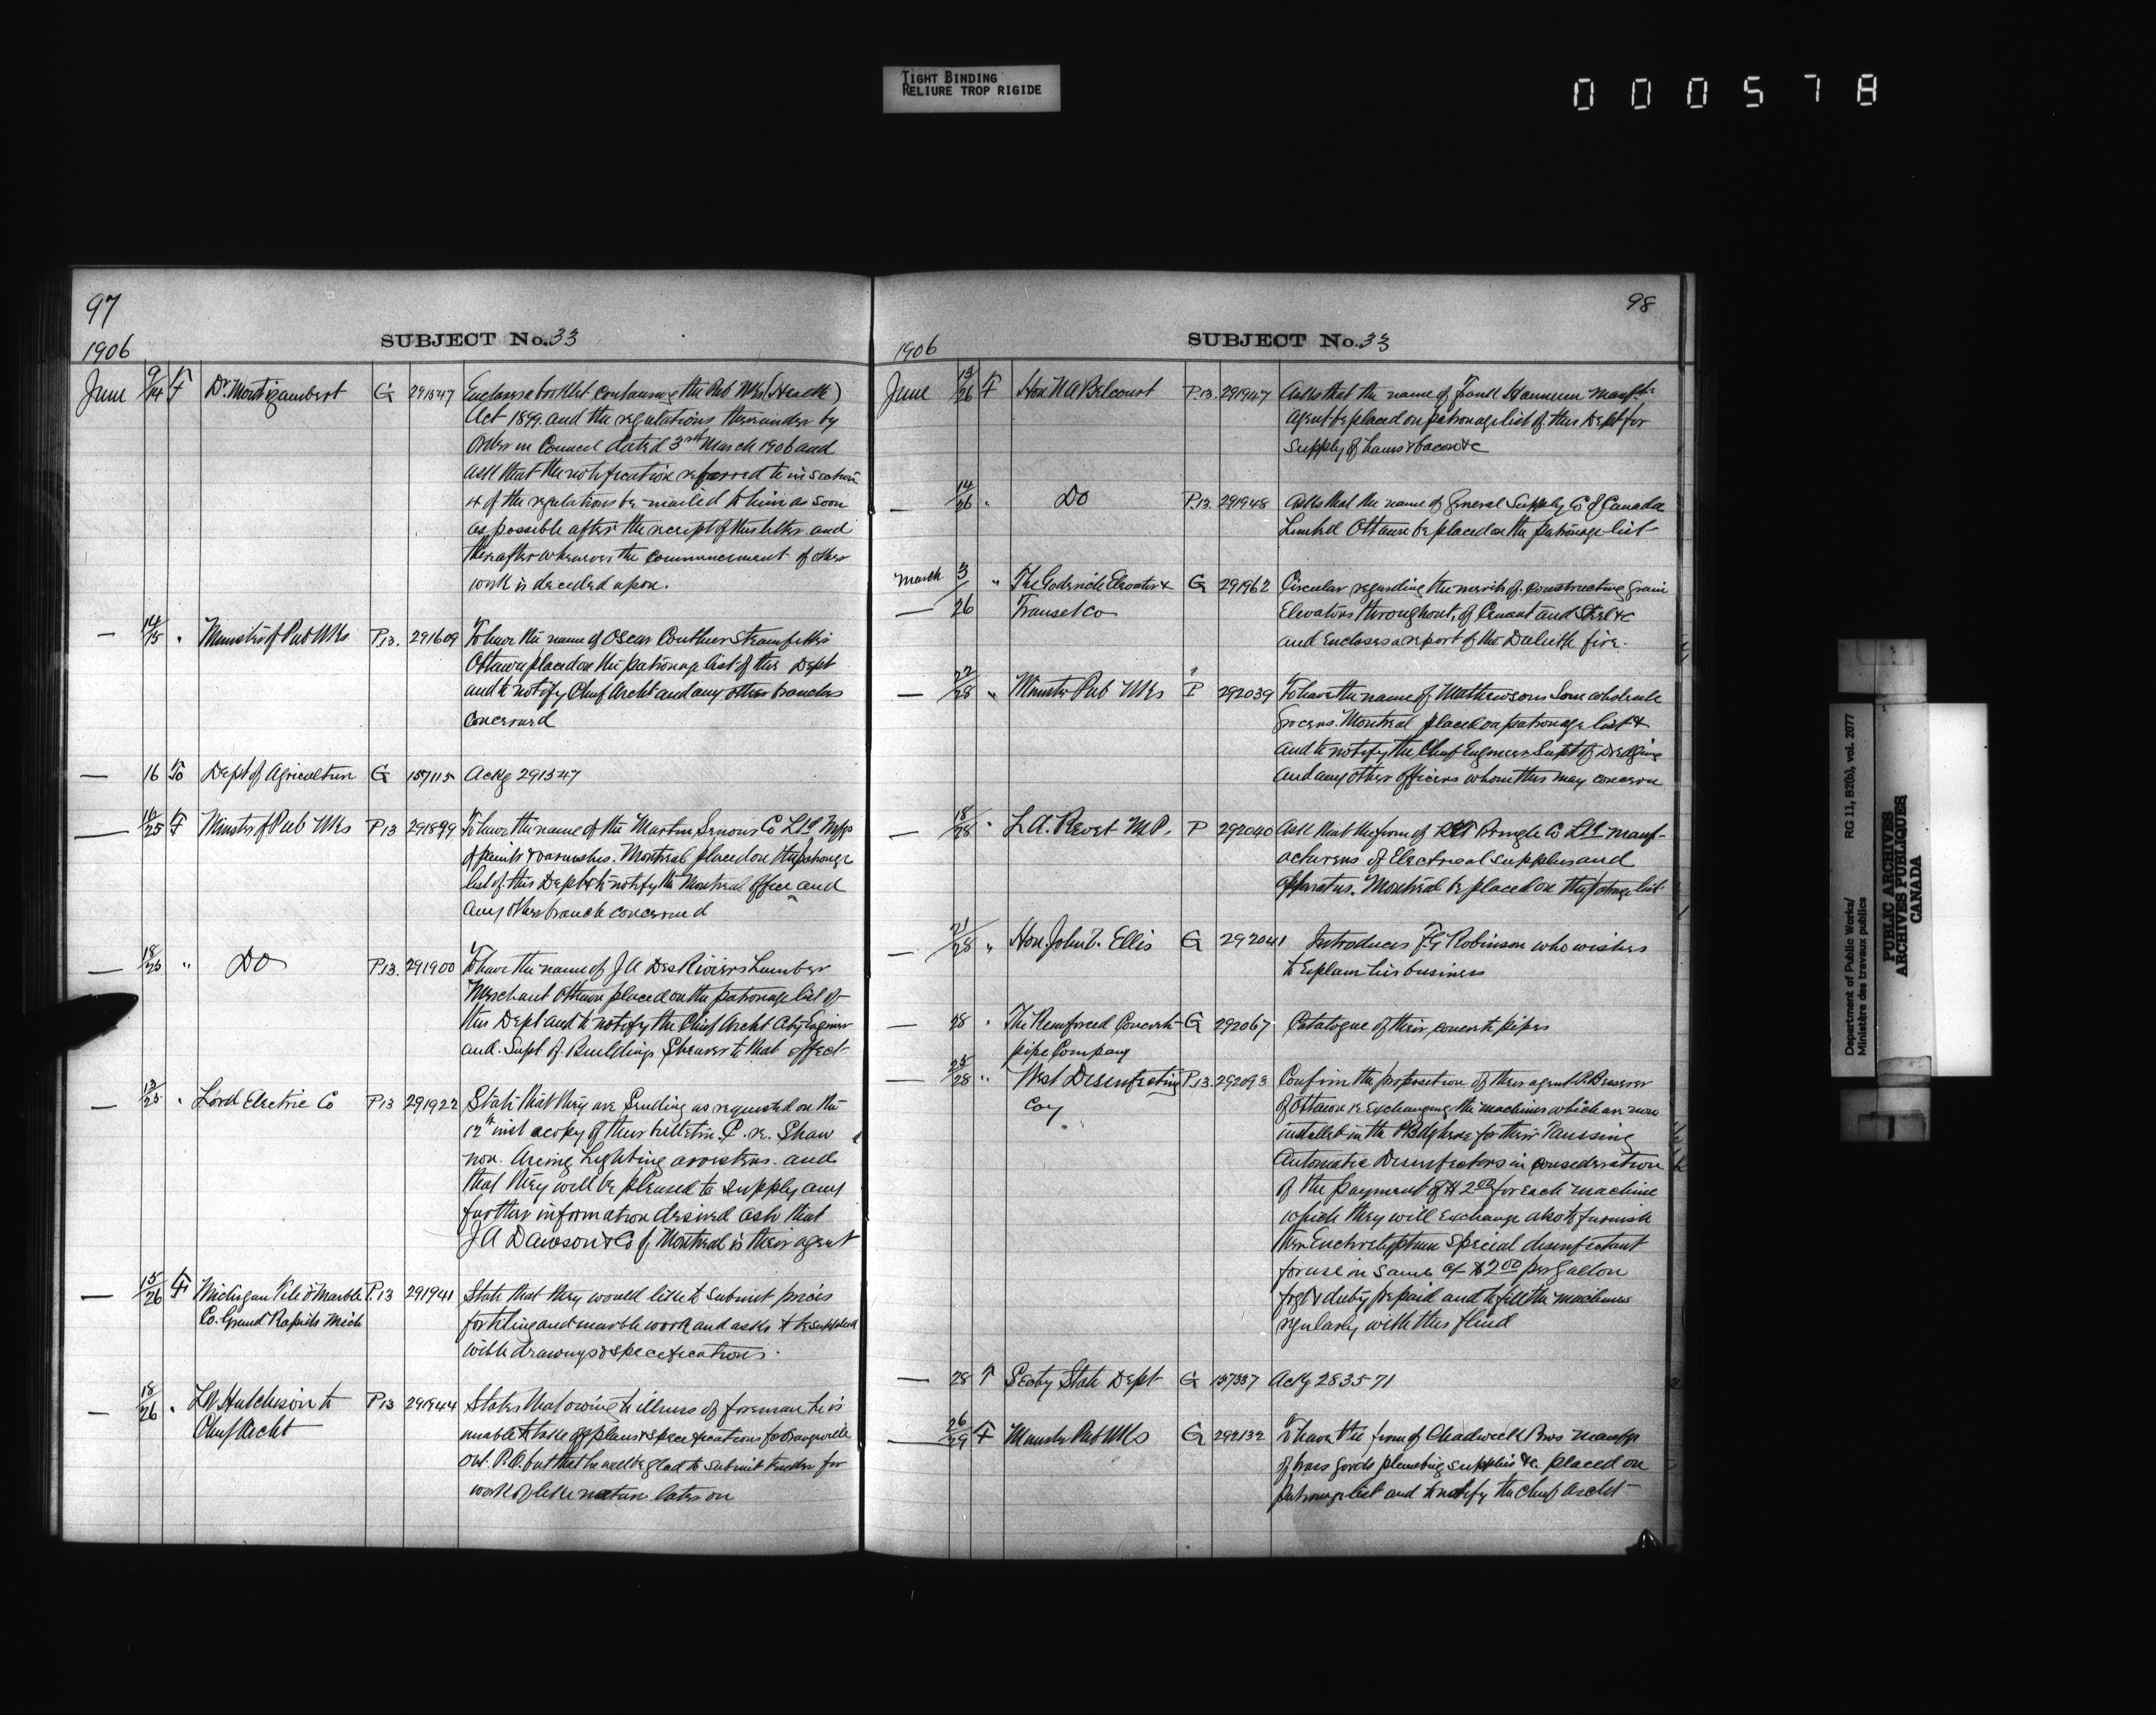 TIGHT BINDING
RELIURE TROP RIGIDE
000578
97
SUBJECT No. 33
1906
June 9/14 F Dr. Montizambert G 291547 Encloses a booklet containing the Pub Wks (Health)
Act 1899. and the regulations thereunder by
Order in Council dated 3rd March 1906 and
ask that the notification referred to in Section
4 of the regulations be mailed to him as soon
as possible after the receipt of this letter and
thereafter whenever the commencement of other
work is decided upon.
— 14/15 " Minister of Pub Wks P.13. 291609 To have the name of Oscar Steamfitter
Ottawa placed on the patronage list of this Dept
and to notify Chief Archt and any other branches
concerned
— 16 To Dept of Agriculture G 157115 Ackg 291547
— 16/25 F Minister of Pub Wks P13 291899 To have the name of the Martin Senour Co Ltd Mfgs
of paints & varnishes. Montreal placed on the patronage
list of this Dept & to notify the Montreal Office and
any other branch concerned
— 18/25 " Do P.13. 291900 To have the name of J A DesRivières Lumber
Merchant Ottawa placed on the patronage list of
this Dept and to notify the Chief Archt Engineer
and Supt of Buildings Shearer to that effect
— 13/25 " Lord Electric Co P13 291922 State that they are sending as requested on the
12th inst a copy of their bulletin P. re. Shaw
non. Arcing Lighting arresters. and
that they will be pleased to supply any
further information desired
J A Dawson & Co of Montreal is their agent
— 15/26 F Michigan Tile & Marble P.13 291941 State that they would like to submit prices
Co. Grand Rapids Mich for tiling and marble work and asks to be supplied
with drawings & specifications.
— 18/26 " Hutchison to P13 291944 States that owing to illness of foreman he is
Chief Archt unable to take off plans & specifications for Orangeville
Ont. P.O. but that he will be glad to submit tender for
work of like nature later on
98
SUBJECT No. 33
1906
June 13/26 F Hon N A Belcourt P13. 291947 Asks that the name of Frank Manftr
Agent be placed on patronage list of this Dept for
Supply of hams & bacon &c
— 14/26 " Do P.13. 291948 Asks that the name of General Supply Co of Canada
Limited Ottawa be placed on the patronage list
March 3/26 " The Goderich Elevator & G 291962 Circular regarding the merits of constructing grain
— Transet Co Elevators throughout, of Cement and Steel &c
and encloses a report of the Duluth fire.
— 22/28 " Minister Pub Wks P 292039 To have the name of Mathewsons Sons wholesale
Grocers. Montreal placed on patronage list &
and to notify the Chief Engineer Supt of Dredging
and any other officers whom this may concern
— 18/28 " L. A. Rivet M.P. P 292040 Ask that the firm of R E T Pringle Co Ltd manuf-
acturers of Electrical supplies and
apparatus. Montreal be placed on the patronage list
— 21/28 " Hon. John V. Ellis G 292041 Introduces F G Robinson who wishes
to explain his business
— 28 " The Reinforced Concrete G 292067 Catalogue of their concrete pipes
pipe Company
— 25/28 " West Disinfecting P.13. 292093 Confirm the proposition of their agent P. Besserer
Coy of Ottawa re exchanging the machines which are now
installed in the P Bldg here for their
Automatic Disinfectors in consideration
of the payment of $2.00 for each machine
which they will exchange also to furnish
their special disinfectant
for use in same at $2.00 per gallon
frgt & duty prepaid and to fill the machines
regularly with this fluid
— 28 T Secty State Dept G 157337 Ackg 283571
— 26/29 F Minister Pub Wks G 292132 To have the firm of Chadwick Bros manfgs
of brass goods plumbing supplies &c placed on
patronage list and to notify the Chief Archt
Department of Public Works/
Ministère des travaux publics
RG 11, B2(b), vol. 2077
PUBLIC ARCHIVES
ARCHIVES PUBLIQUES
CANADA